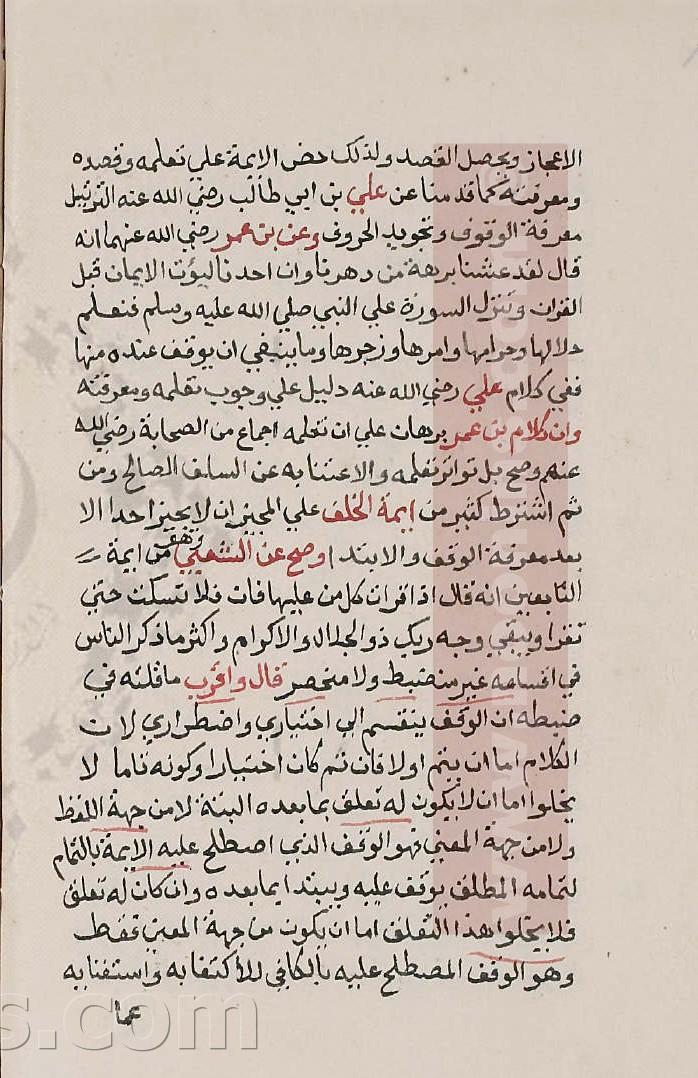 الاعجاز ويحصل القصد ولذلك حض الايمة علي تعلمه وقصده
ومعرفته كما قدمنا عن علي بن ابي طالب رضي الله عنه الترتيل
معرفة الوقوف وتجويد الحروف وعن بن عمر رضي الله عنهما انه
قال لقد عشنا برهة من دهرنا وان احدنا ليؤت الايمان قبل
القران وتنزل السورة علي النبي صلي الله عليه وسلم فنعلم
حلالها وحرامها وامرها وزجرها وما ينبغي ان يوقف عنده منها
ففي كلام علي رضي الله عنه دليل علي وجوب تعلمه ومعرفته
وان كلام بن عمر برهان علي ان تعلمه اجماع من الصحابة رضي الله
عنهم وصح بل تواتر تعلمه والاعتنا به عن السلف الصالح ومن
ثم اشترط كثير من ايمة الخلف علي المجيز ان لا يجيز احدا الا
بعد معرفة الوقف والابتدا وصح عن الشعبي وهو من ايمة
التابعين انه قال اذا قرات كل من عليها فان فلا تسكت حتي
تقرا ويبقي وجه ربك ذو الجلال والاكرام واكثر ما ذكر الناس
في اقسامه غير منضبط ولا منحصر قال واقرب ما قلته في
ضبطه ان الوقف ينقسم الي اختياري واضطراري لان
الكلام اما ان يتم او لا فان تم كان اختيارا وكونه تاما لا
يخلوا اما ان لا يكون له تعلق بما بعده البتة لا من جهة اللفظ
ولا من جهة المعني فهو الوقف الذي اصطلح عليه الايمة بالتمام
لتمامه المطلق يوقف عليه ويبتدا بما بعده وان كان له تعلق
فلا يخلوا هذا التعلق اما ان يكون من جهة المعني فقط
وهو الوقف المصطلح عليه بالكافي للاكتفا به واستغنايه
عما
s.com